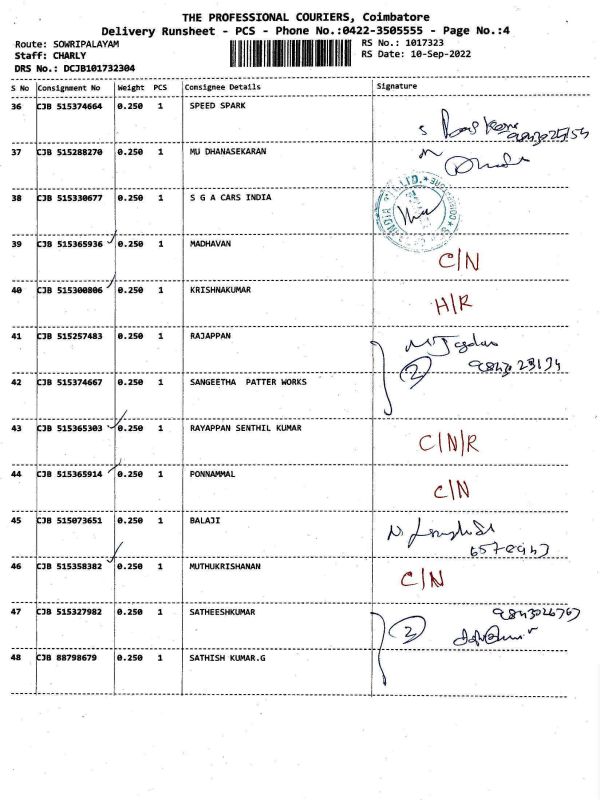 THE PROFESSIONAL COURIERS, Coimbatore
Delivery Runsheet - PCS - Phone No.:0422-3505555 - Page No.:4
Route: SOWRIPALAYAM RS No.: 1017323
Staff: CHARLY RS Date: 10-Sep-2022
DRS No.: DCJB101732304
S No Consignment No Weight PCS Consignee Details Signature
36 CJB 515374664 0.250 1 SPEED SPARK
S
37 CJB 515288270 0.250 1 MU DHANASEKARAN
38 CJB 515330677 0.250 1 S G A CARS INDIA
39 CJB 515365936 0.250 1 MADHAVAN
C/N
40 CJB 515300806 0.250 1 KRISHNAKUMAR
H/R
41 CJB 515257483 0.250 1 RAJAPPAN
2
42 CJB 515374667 0.250 1 SANGEETHA PATTER WORKS
43 CJB 515365303 0.250 1 RAYAPPAN SENTHIL KUMAR
C/N/R
44 CJB 515365914 0.250 1 PONNAMMAL
C/N
45 CJB 515073651 0.250 1 BALAJI
46 CJB 515358382 0.250 1 MUTHUKRISHANAN
C/N
47 CJB 515327982 0.250 1 SATHEESHKUMAR
9843026767
2
48 CJB 88798679 0.250 1 SATHISH KUMAR.G